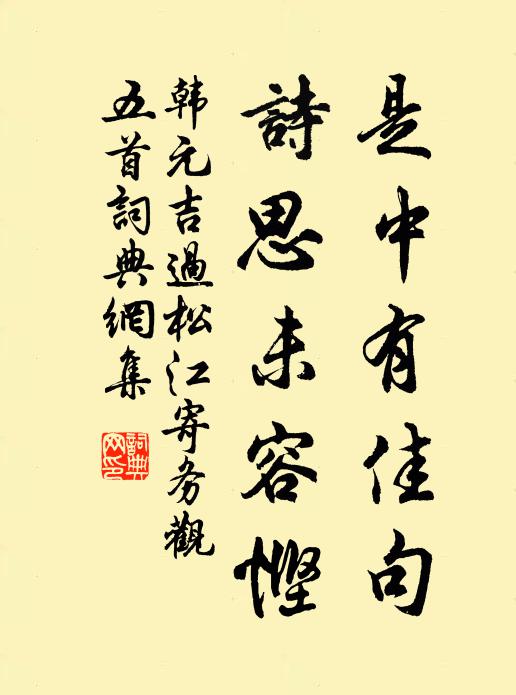 是中有佳句
詩思未容慳
韩元吉過松江寄务觀
五首詞典網集
詞典
网印